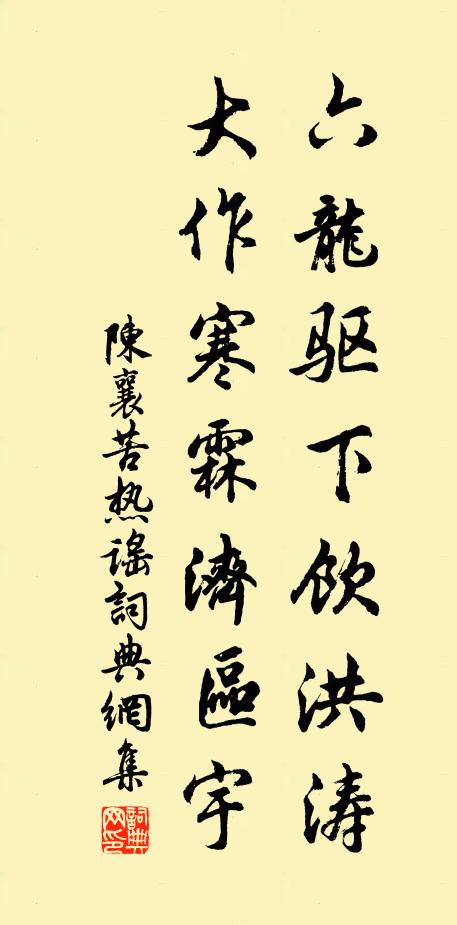 六龍驱下飲洪涛
大作寒霖濟區宇
陳襄苦热謠詞典網集
詞典网印